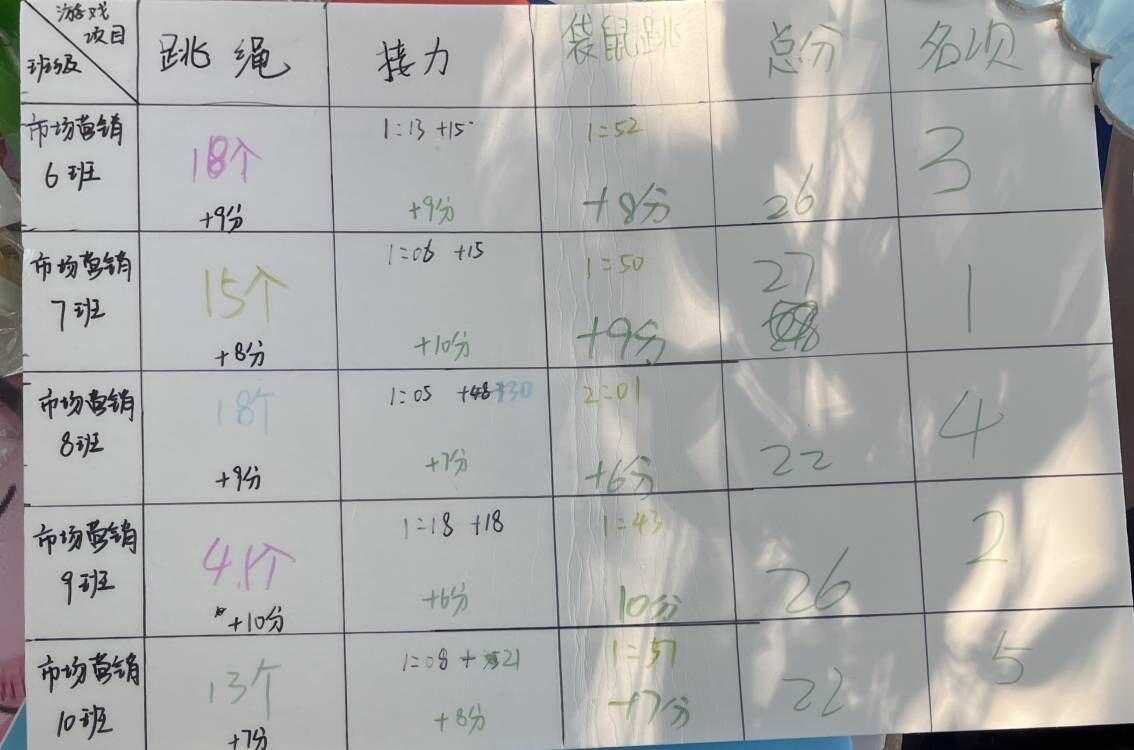 游戏
项目
班级
跳绳
接力
袋鼠跳
总分
名项
市场营销
6班
18个
+9分
1:13 +15
+9分
1:52
+8分
26
3
市场营销
7班
15个
+8分
1:06 +15
+10分
1:50
+9分
27
1
市场营销
8班
18个
+9分
1:05 +48 +30
+7分
2:01
+6分
22
4
市场营销
9班
41个
+10分
1:18 +18
+6分
1:43
10分
26
2
市场营销
10班
13个
+7分
1:08 + 21
+8分
1:57
+7分
22
5